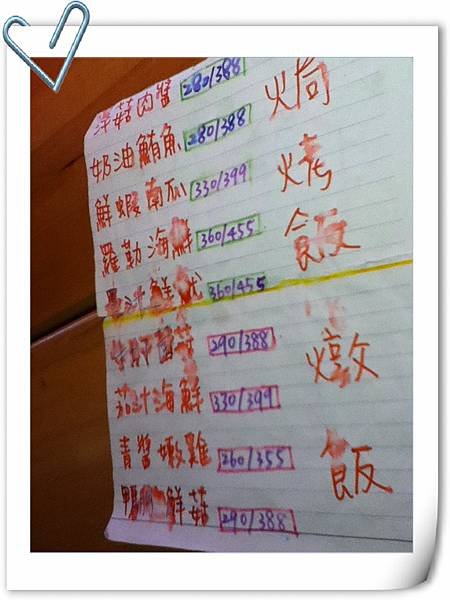 洋菇肉醬 280/388
奶油鮪魚 280/388
鮮蝦南瓜 330/399
羅勒海鮮 360/455
墨汁鮮 360/455
菌菇 290/388
茄汁海鮮 330/399
青醬嫩雞 260/355
鴨 鮮菇 290/388
焗
烤
飯
燉
飯